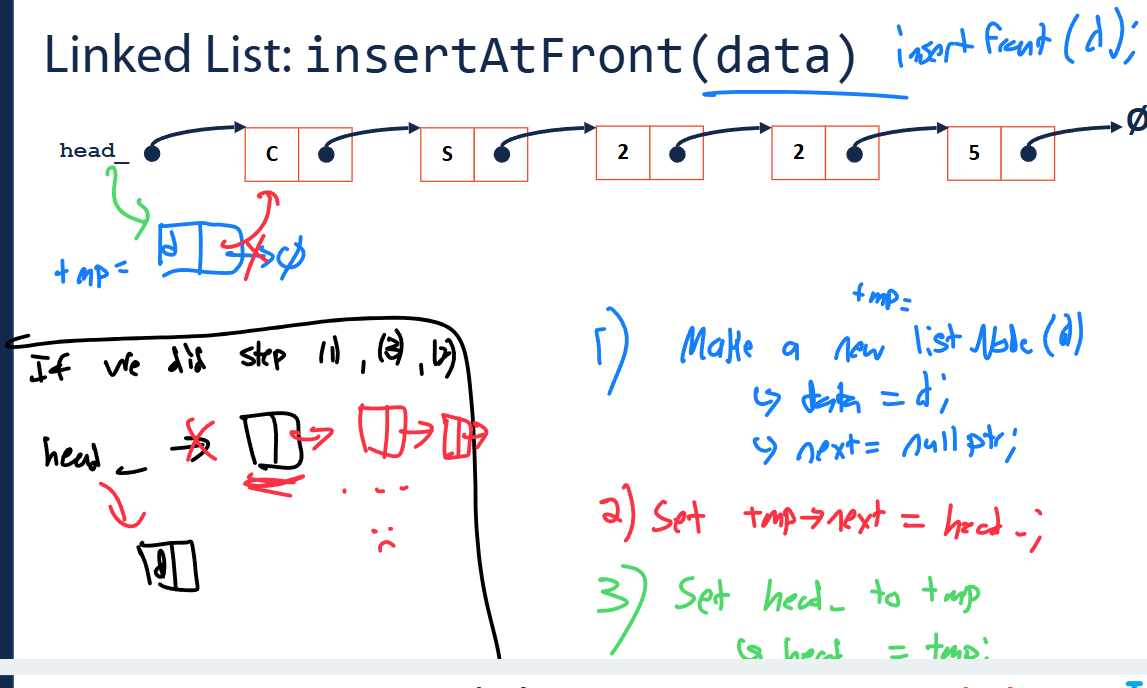 Linked List: insertAtFront(data)
insertFront(d);
head_
C S 2 2 5 Ø
tmp = d Ø
If we did step (1), (3), (2)
head_
d
tmp =
1) Make a new listNode(d)
↳ data = d;
↳ next = nullptr;
2) Set tmp→next = head_;
3) Set head_ to tmp
↳ head_ = tmp;